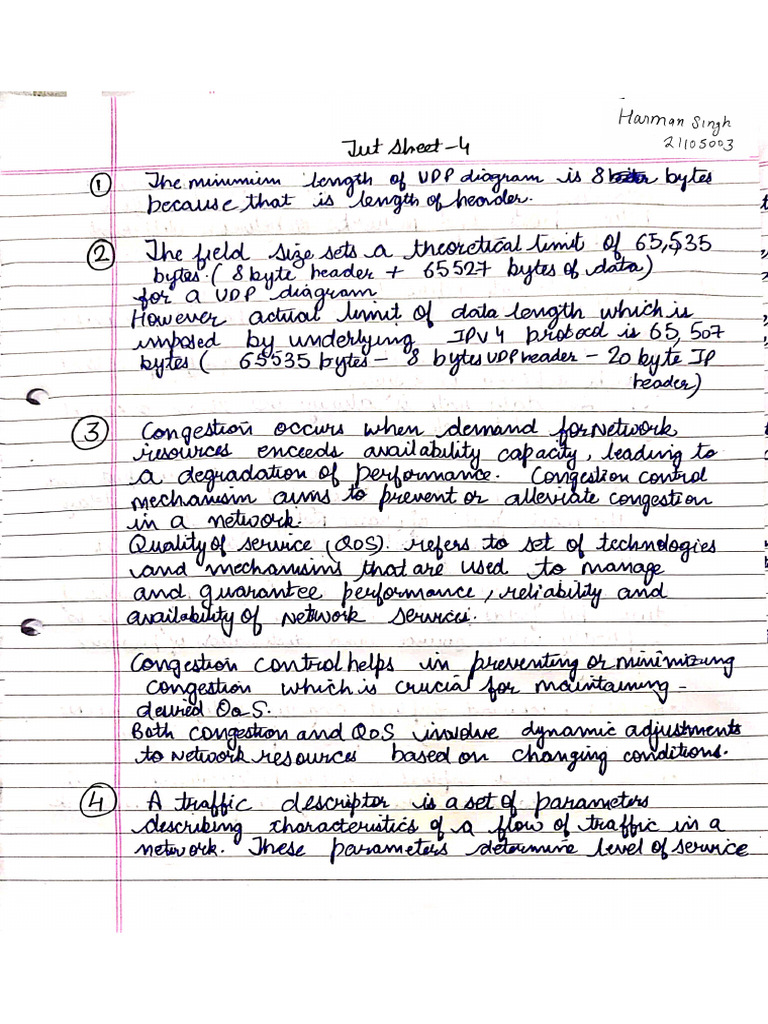 Harman Singh
21105003
Tut Sheet-4
1 The minimum length of UDP diagram is 8 bytes
because that is length of header.
2 The field size sets a theoretical limit of 65,535
bytes. ( 8 byte header + 65527 bytes of data)
for a UDP diagram
However actual limit of data length which is
imposed by underlying IPv4 protocol is 65,507
bytes ( 65535 bytes - 8 bytes UDP header - 20 byte IP
header)
3 Congestion occurs when demand for Network
resources exceeds availability capacity, leading to
a degradation of performance. Congestion control
mechanism aims to prevent or alleviate congestion
in a network.
Quality of service (QoS). refers to set of technologies
and mechanisms that are used to manage
and guarantee performance, reliability and
availability of Network services.
Congestion control helps in preventing or minimizing
congestion which is crucial for maintaining -
desired QoS.
Both congestion and QoS involve dynamic adjustments
to Network resources based on changing conditions.
4 A traffic descriptor is a set of parameters
describing characteristics of a flow of traffic in a
network. These parameters determine level of service